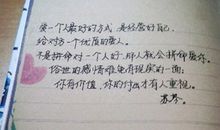 爱一个人最好的方式,是经营好自己,
给对方一个优质的爱人。
不是拼命对一个人好,那人就会拼命爱你。
俗世的感情难免有现实的一面:
你有价值,你的付出才有人重视。
苏芩。